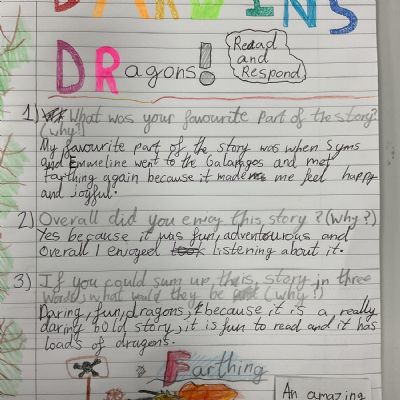 DARWINS
DRagons!
Read
and
Respond
1) What was your favourite part of the story?
(why?)
My favourite part of the story was when Syms
and Emmeline went to the Galapagos and met
Farthing again because it made me feel happy
and joyful.
2) Overall did you enjoy this story? (Why?)
Yes because it was fun, adventourous and
Overall I enjoyed listening about it.
3) If you could sum up this story in three
words, what would they be (why!)
Daring, fun, dragons, because it is a really
daring bold story, it is fun to read and it has
loads of dragons.
Farthing
An amazing